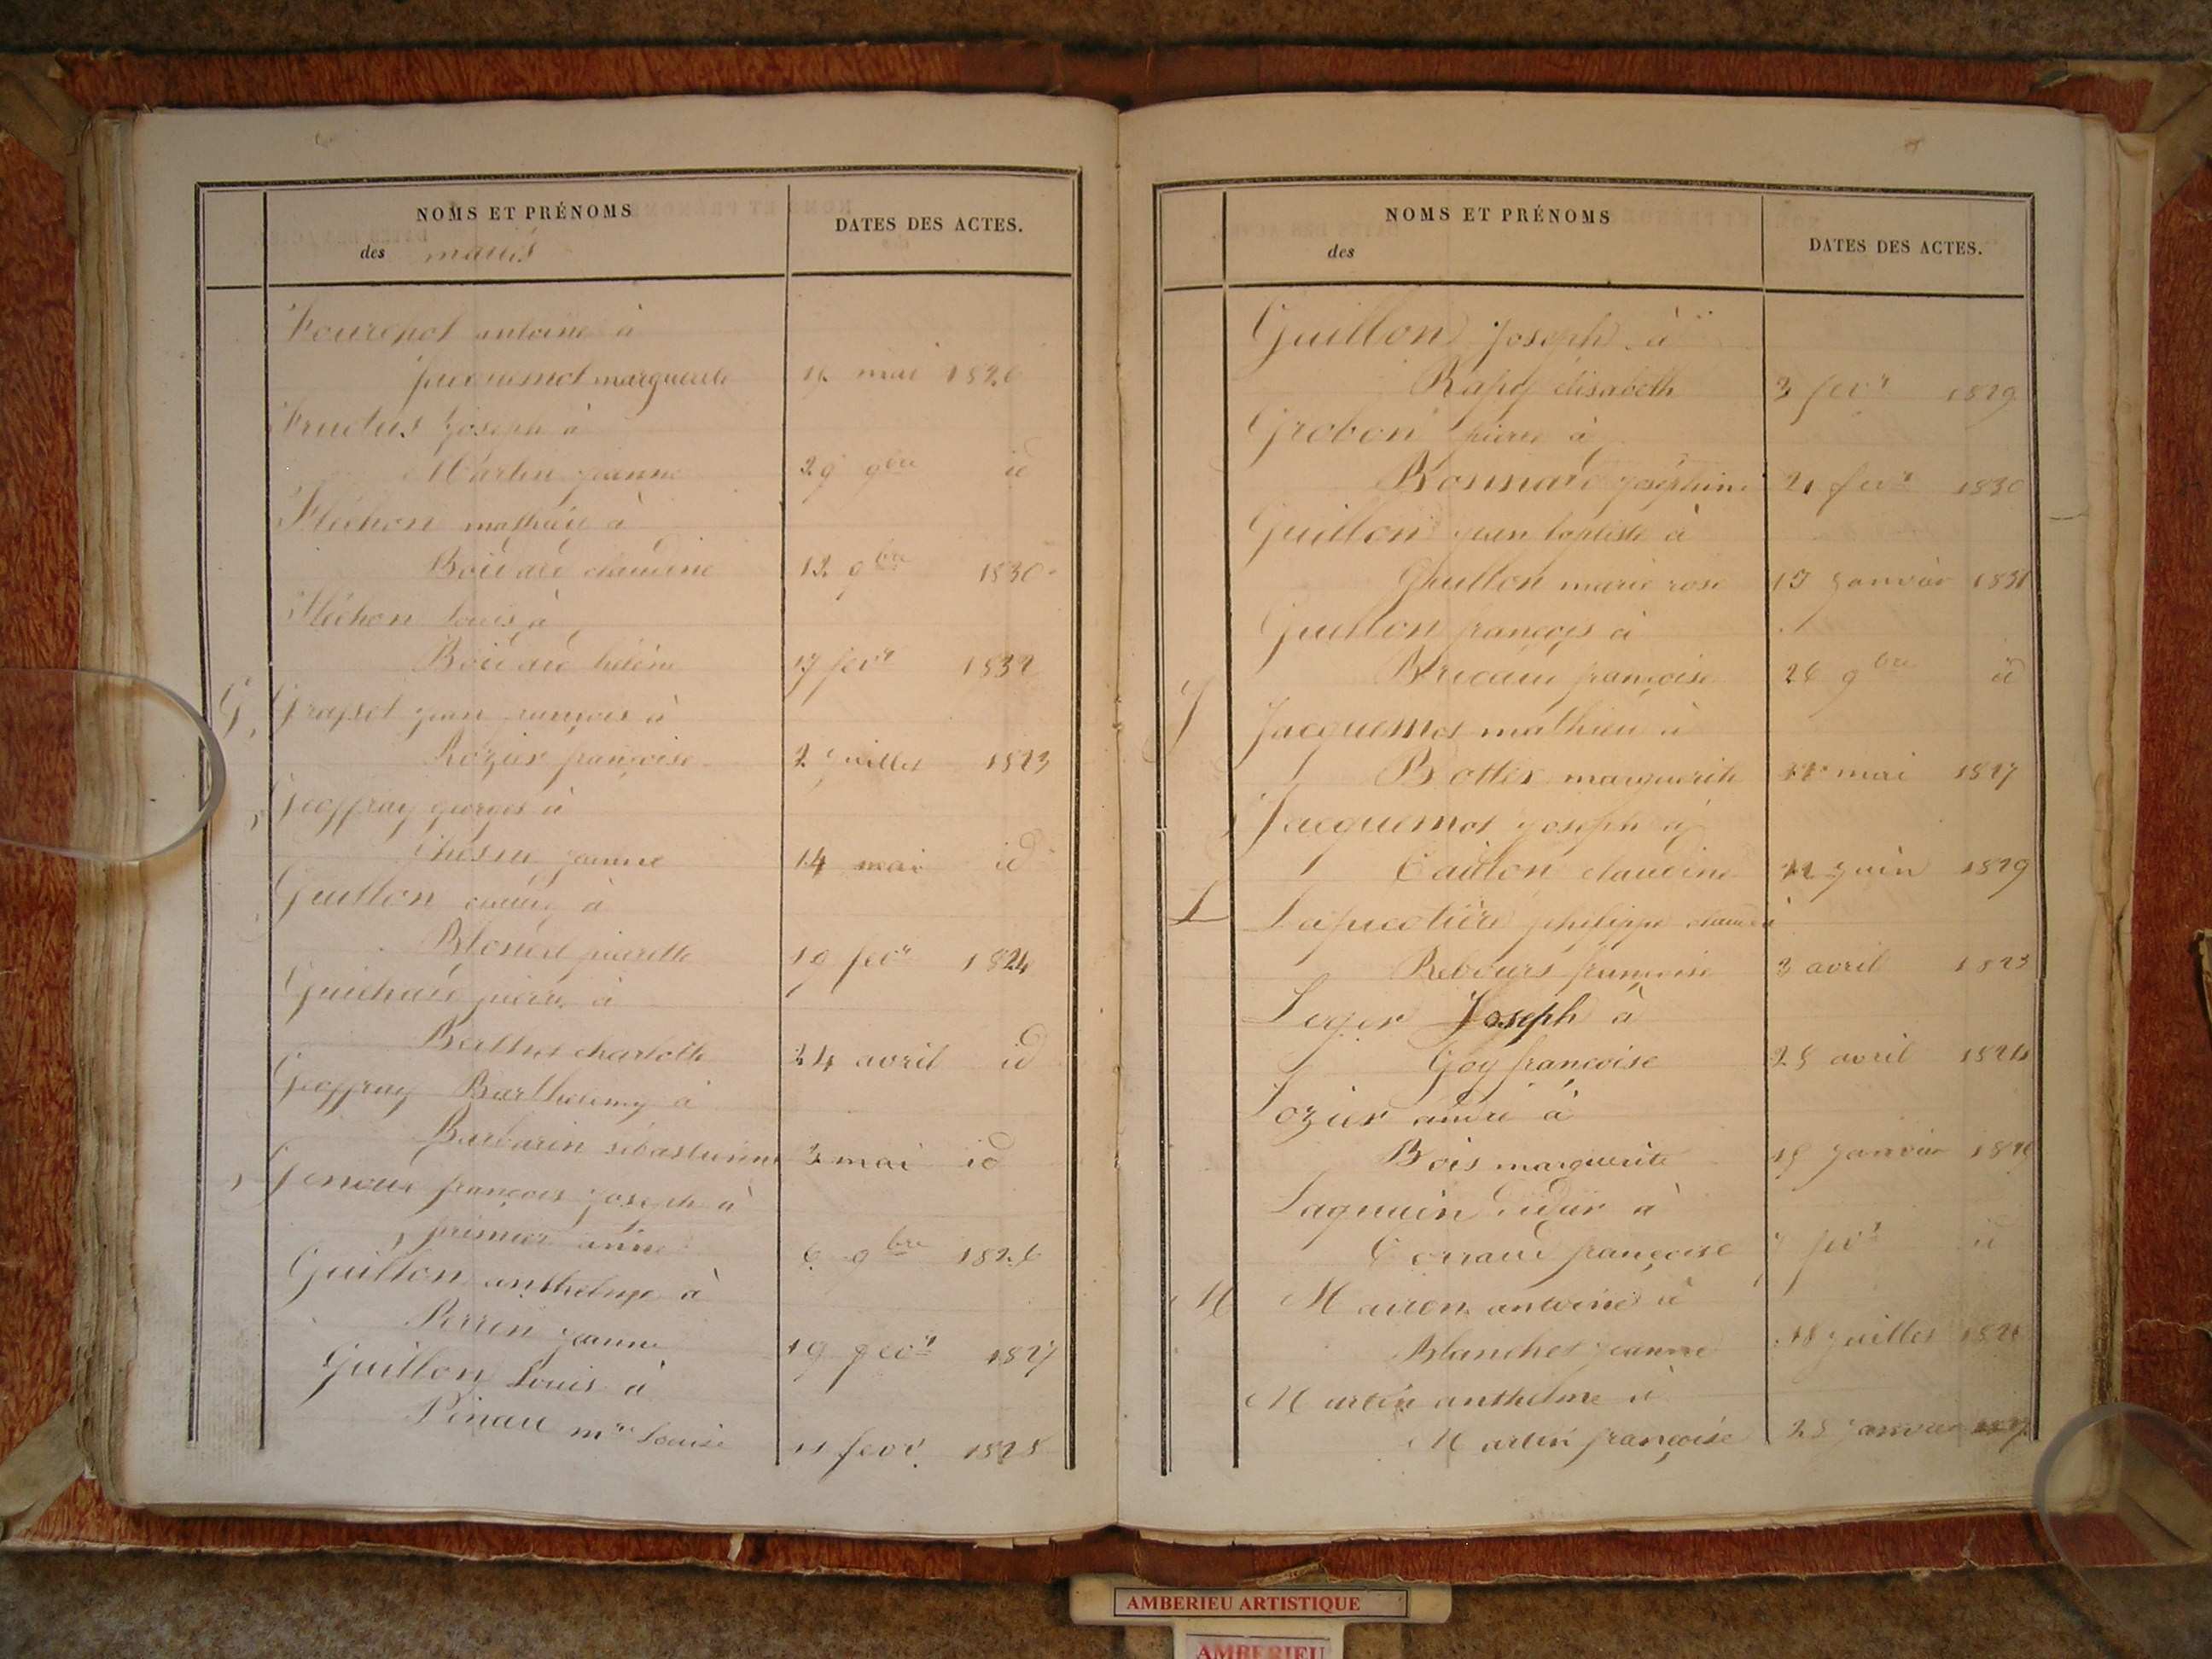 NOMS ET PRÉNOMS
des mariés
DATES DES ACTES.
antoine à
Jacquemet marguerite mai 1826
Fructus Joseph à
Martin jeanne 29 9bre id
Fléchon mathieu à
Bouvard claudine 12 9bre 1830
Fléchon Louis à
Bouvard hélène 17 fevr 1832
G
Grapset jean françois à
Rozier françoise 2 juillet 1823
Geoffray georges à
jeanne 14 mai id
Guillon à
pierrette 10 fevr 1824
Guichard pierre à
Berthet charlotte 24 avril id
Geoffray Barthelemy à
Barbarin sébastienne 3 mai id
françois joseph à
anne 6 9bre 1826
Guillon anthelme à
Perrin jeanne 19 fevr 1827
Guillon Louis à
mie Louise 11 fevr 1828
NOMS ET PRÉNOMS
des
DATES DES ACTES.
Guillon Joseph à
Rapy élisabeth 3 fevr 1829
Grobon pierre à
Bonnard joséphine 21 fevr 1830
Guillon jean baptiste à
Guillon marie rose 17 janvier 1831
Guillon françois à
françoise 26 9bre id
J
Jacquemet mathieu à
Bottex marguerite mai 1827
Jacquemet joseph à
Caillon claudine juin 1829
L
philippe claude à
Rebours françoise 3 avril 1823
Leger Joseph à
Goy françoise 28 avril 1824
Lozier andré à
Bois marguerite janvier
Laguain Didier à
Corraud françoise fevr id
M
antoine à
Blanchet jeanne 18 juillet 1821
Martin anthelme à
Martin françoise 25 janvier
AMBERIEU ARTISTIQUE
AMBERIEU